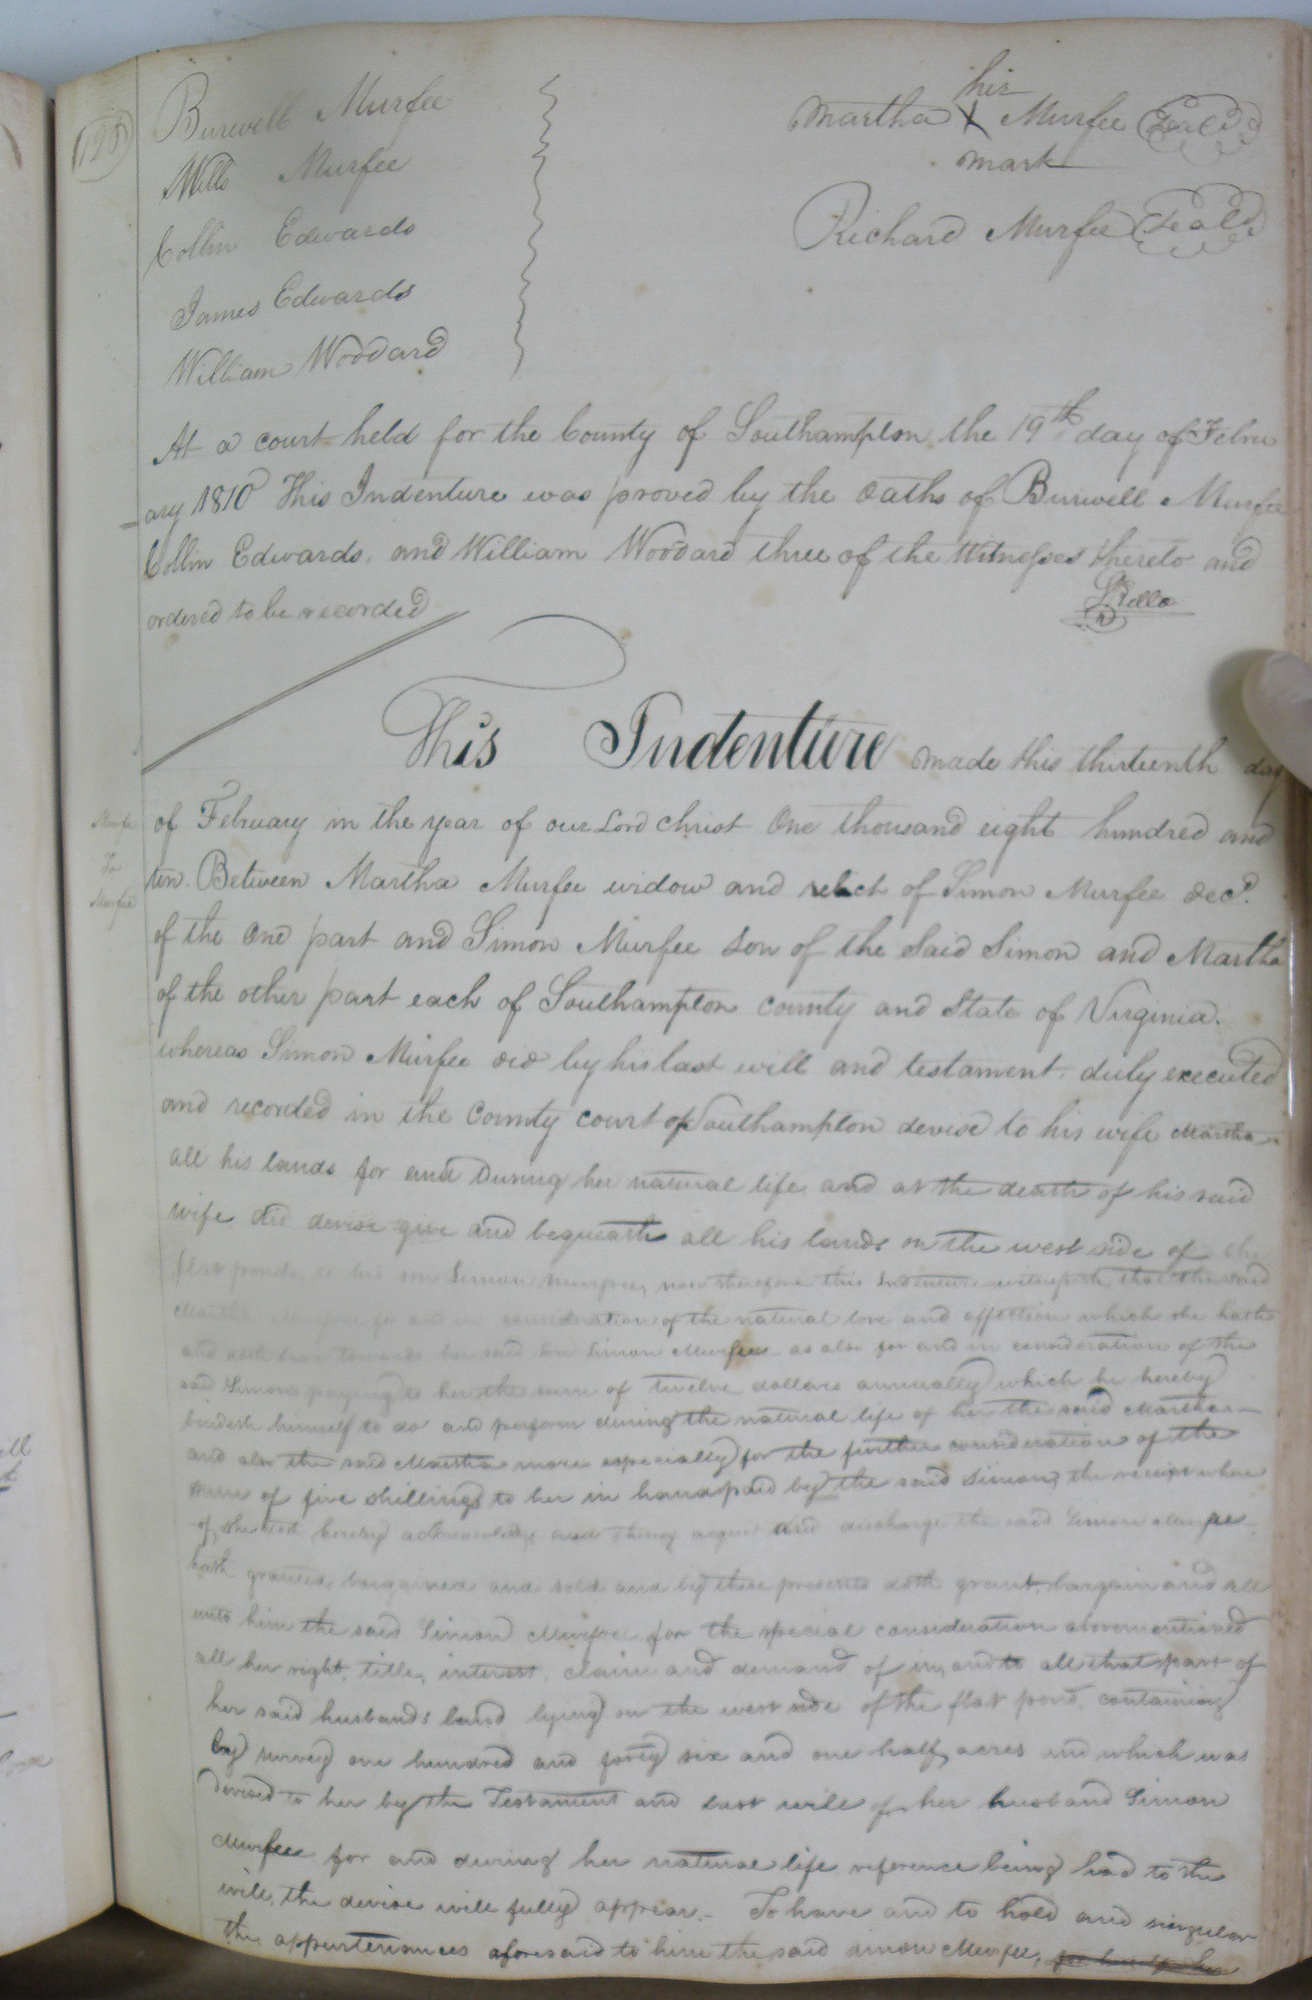 Burwell Murfee
Mills Murfee
Collin Edwards
James Edwards
William Woodard
his
Martha X Murfee Seal
mark
Richard Murfee Seal
At a court held for the County of Southampton the 19th day of Febru
ary 1810 This Indenture was proved by the oaths of Burwell Murfee
Collin Edwards, and William Woodard three of the Witnesses thereto and
ordered to be recorded
This Indenture made this thirteenth day
Murfee
To
Murfee
of February in the year of our Lord christ One thousand eight hundred and
ten. Between Martha Murfee widow and relict of Simon Murfee decd.
of the One part and Simon Murfee Son of the Said Simon and Martha
of the other part each of Southampton County and State of Virginia.
whereas Simon Murfee did by his last will and testament, duly executed
and recorded in the County court of Southampton devise to his wife Martha
all his lands for and During her natural life and at the death of his said
wife did devise give and bequeath all his lands on the west side of the
flat ponds, to his son Simon Murfree, now therefore this Indenture witnesseth that the said
Martha Murfree for and in consideration of the natural love and affection which she hath
and doth bear towards her said son Simon Murfee as also for and in consideration of the
said Simons paying to her the sum of twelve dollars annually which he hereby
bindeth himself to do and perform during the natural life of her the said Martha
and also the said Martha more especially for the further consideration of the
sum of five shillings to her in hand paid by the said Simon, the receipt where
of she doth hereby acknowledge and discharge the said Simon Murfee
hath granted, bargained and sold and by these presents doth grant, bargain and sell
unto him the said Simon Murfree for the special consideration abovementioned
all her right, title, interest, claim and demand of in, and to all that part of
her said husbands land lying on the west side of the flat pond, containing
by survey one hundred and forty six and one half acres and which was
devised to her by the Testament and last will of her husband Simon
Murfee for and during her natural life reference being had to the
will, the devise will fully appear. To have and to hold and singular
the appurtenances aforesaid to him the said Simon Murfee,